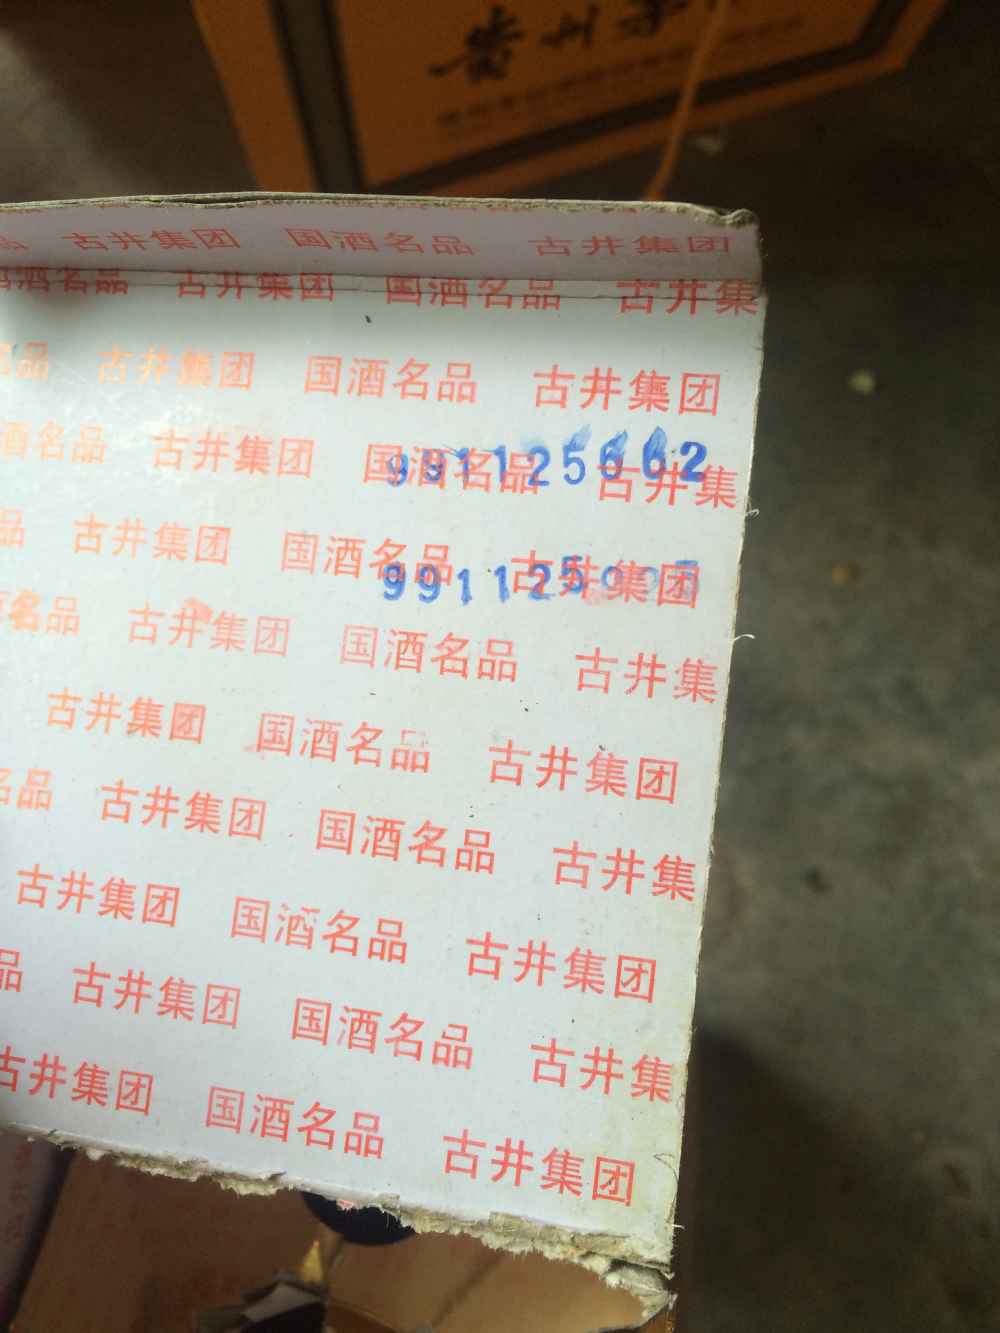 贵州茅
古井集团 国酒名品 古井集团
国酒名品 古井集团 国酒名品 古井集
名品 古井集团 国酒名品 古井集团
酒名品 古井集团 国酒名品 古井集
991125662
品 古井集团 国酒名品 古井集团
991125
名品 古井集团 国酒名品 古井集
古井集团 国酒名品 古井集团
名品 古井集团 国酒名品 古井集
古井集团 国酒名品 古井集团
品 古井集团 国酒名品 古井集
古井集团 国酒名品 古井集团